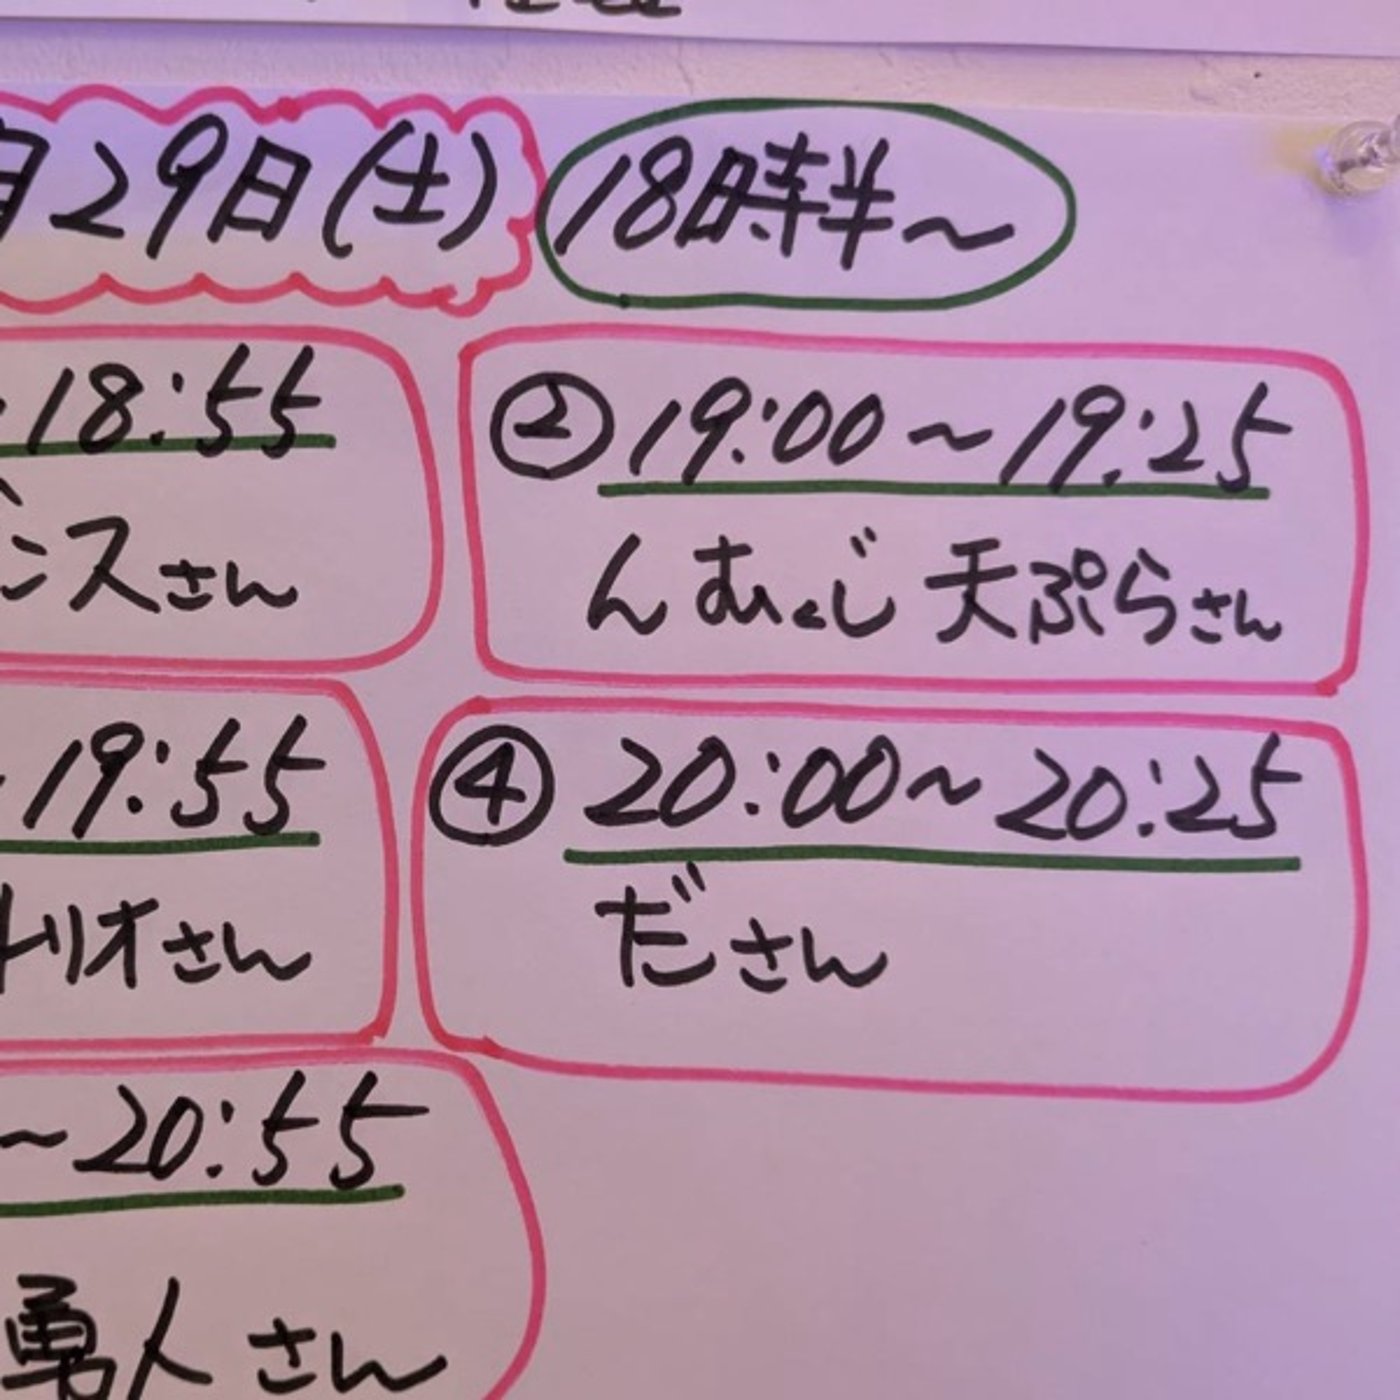 月29日(土) 18時半~
18:55
ンスさん
② 19:00~19:25
んむくじ 天ぷらさん
19:55
トリオさん
④ 20:00~20:25
ださん
~20:55
勇人さん